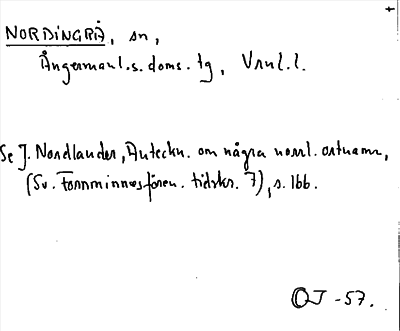 NORDINGRÅ, sn,
Ångermanl.s. doms. tg, Vnl.l.
Se J. Nordlander, Anteckn. om några norrl. ortnamn,
(Sv. Fornminnesfören. tidskr. 7), s. 166.
OJ -57.